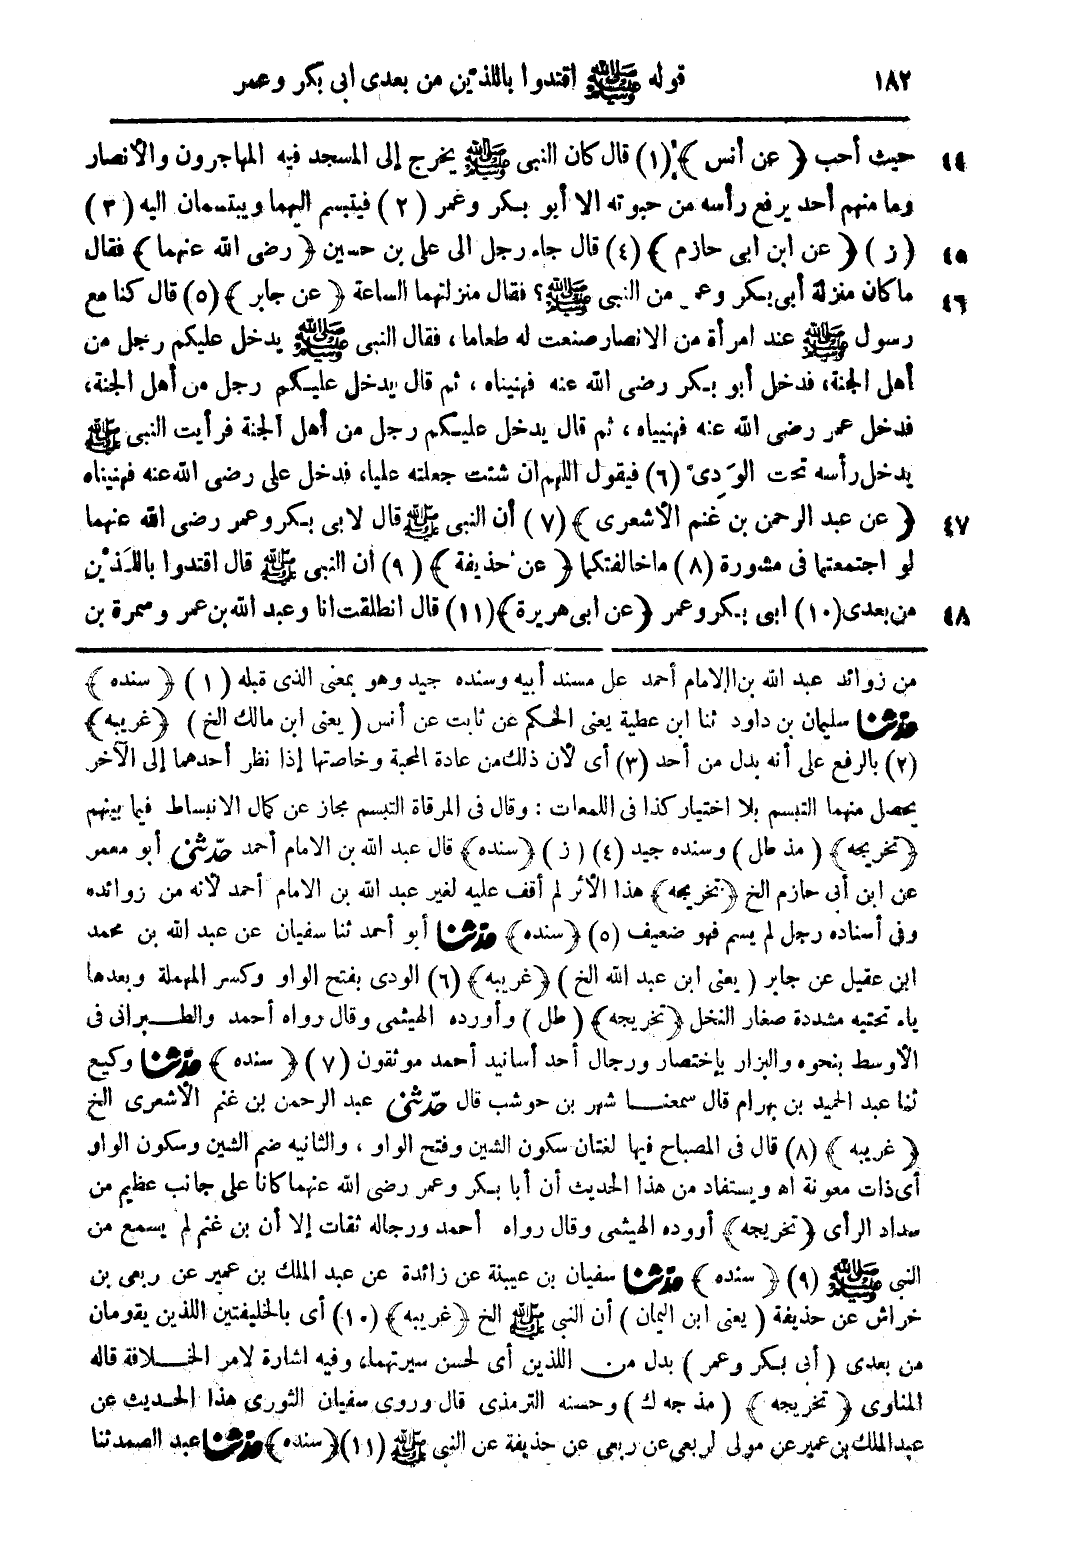 ١٨٢ قوله ﷺ اقتدوا باللذين من بعدى ابى بكر وعمر
٤٤ حيث أحب ﴿ عن أنس ﴾ (١) قال كان النبى ﷺ يخرج إلى المسجد فيه المهاجرون والأنصار
وما منهم أحد يرفع رأسه من حبوته الا أبو بكر وعمر (٢) فيتبسم اليهما ويبتسمان اليه (٣)
٤٥ ( ز ) ﴿ عن ابن ابى حازم ﴾ (٤) قال جاء رجل الى على بن حسين ﴿ رضى الله عنهما ﴾ فقال
٤٦ ما كان منزلة أبى بكر وعمر من النبى ﷺ؟ فقال منزلتهما الساعة ﴿ عن جابر ﴾ (٥) قال كنا مع
رسول ﷺ عند امرأة من الانصار صنعت له طعاما، فقال النبى ﷺ يدخل عليكم رجل من
أهل الجنة، فدخل أبو بكر رضى الله عنه فهنيناه ، ثم قال يدخل عليكم رجل من أهل الجنة،
فدخل عمر رضى الله عنه فهنيناه ، ثم قال يدخل عليكم رجل من أهل الجنة فرأيت النبى ﷺ
يدخل رأسه تحت الوَدىّ (٦) فيقول اللهم ان شئت جعلته عليا، فدخل على رضى الله عنه فهنيناه
٤٧ ﴿ عن عبد الرحمن بن غنم الأشعرى ﴾ (٧) أن النبى ﷺ قال لابى بكر وعمر رضى الله عنهما
لو اجتمعتما فى مشورة (٨) ما خالفتكما ﴿ عن حذيفة ﴾ (٩) أن النبى ﷺ قال اقتدوا باللذَيْن
٤٨ من بعدى (١٠) ابى بكر وعمر ﴿عن ابى هريرة﴾ (١١) قال انطلقت انا وعبد الله بن عمر وسمرة بن
من زوائد عبد الله بن الإمام أحمد على مسند أبيه وسنده جيد وهو بمعنى الذى قبله (١) ﴿ سنده ﴾
حدّثنا سليمان بن داود ثنا ابن عطية يعنى الحكم عن ثابت عن أنس ( يعنى ابن مالك الخ ) ﴿غريبه﴾
(٢) بالرفع على أنه بدل من أحد (٣) أى لأن ذلك من عادة المحبة وخاصتها إذا نظر أحدهما إلى الآخر
يحصل منهما التبسم بلا اختيار كذا فى اللمعات : وقال فى المرقاة التبسم مجاز عن كمال الانبساط فيما بينهم
﴿تخريجه﴾ ( مذ طل ) وسنده جيد (٤) ( ز ) ﴿سنده﴾ قال عبد الله بن الامام أحمد حدّثنى أبو معمر
عن ابن أبى حازم الخ ﴿تخريجه﴾ هذا الأثر لم أقف عليه لغير عبد الله بن الامام أحمد لأنه من زوائده
وفى أسناده رجل لم يسم فهو ضعيف (٥) ﴿سنده﴾ حدّثنا أبو أحمد ثنا سفيان عن عبد الله بن محمد
ابن عقيل عن جابر ( يعنى ابن عبد الله الخ ) ﴿غريبه﴾ (٦) الودى بفتح الواو وكسر المهملة وبعدها
ياء تحتيه مشددة صغار النخل ﴿تخريجه﴾ ( طل ) وأورده الهيثمى وقال رواه أحمد والطبرانى فى
الأوسط بنحوه والبزار بإختصار ورجال أحد أسانيد أحمد موثقون (٧) ﴿ سنده ﴾ حدّثنا وكيع
ثنا عبد الحميد بن بهرام قال سمعنا شهر بن حوشب قال حدّثنى عبد الرحمن بن غنم الأشعرى الخ
﴿ غريبه ﴾ (٨) قال فى المصباح فيها لغتان سكون الشين وفتح الواو ، والثانيه ضم الشين وسكون الواو
أى ذات معونة اه ويستفاد من هذا الحديث أن أبا بكر وعمر رضى الله عنهما كانا على جانب عظيم من
سداد الرأى ﴿ تخريجه﴾ أوورده الهيثمى وقال رواه أحمد ورجاله ثقات إلا أن بن غنم لم يسمع من
النبى ﷺ (٩) ﴿ سنده ﴾ حدّثنا سفيان بن عيينة عن زائدة عن عبد الملك بن عمير عن ربعى بن
خراش عن حذيفة ( يعنى ابن اليمان ) أن النبى ﷺ الخ ﴿غريبه﴾ (١٠) أى بالخليفتين اللذين يقومان
من بعدى ( أبى بكر وعمر ) بدل من اللذين أى لحسن سيرتهما، وفيه اشارة لامر الخلافة قاله
المناوى ﴿ تخريجه ﴾ ( مذ جه ك ) وحسنه الترمذى قال وروى سفيان الثورى هذا الحديث عن
عبد الملك بن عمير عن مولى لربعى عن ربعى عن حذيفة عن النبى ﷺ (١١) ﴿سنده﴾ حدّثنا عبد الصمد ثنا